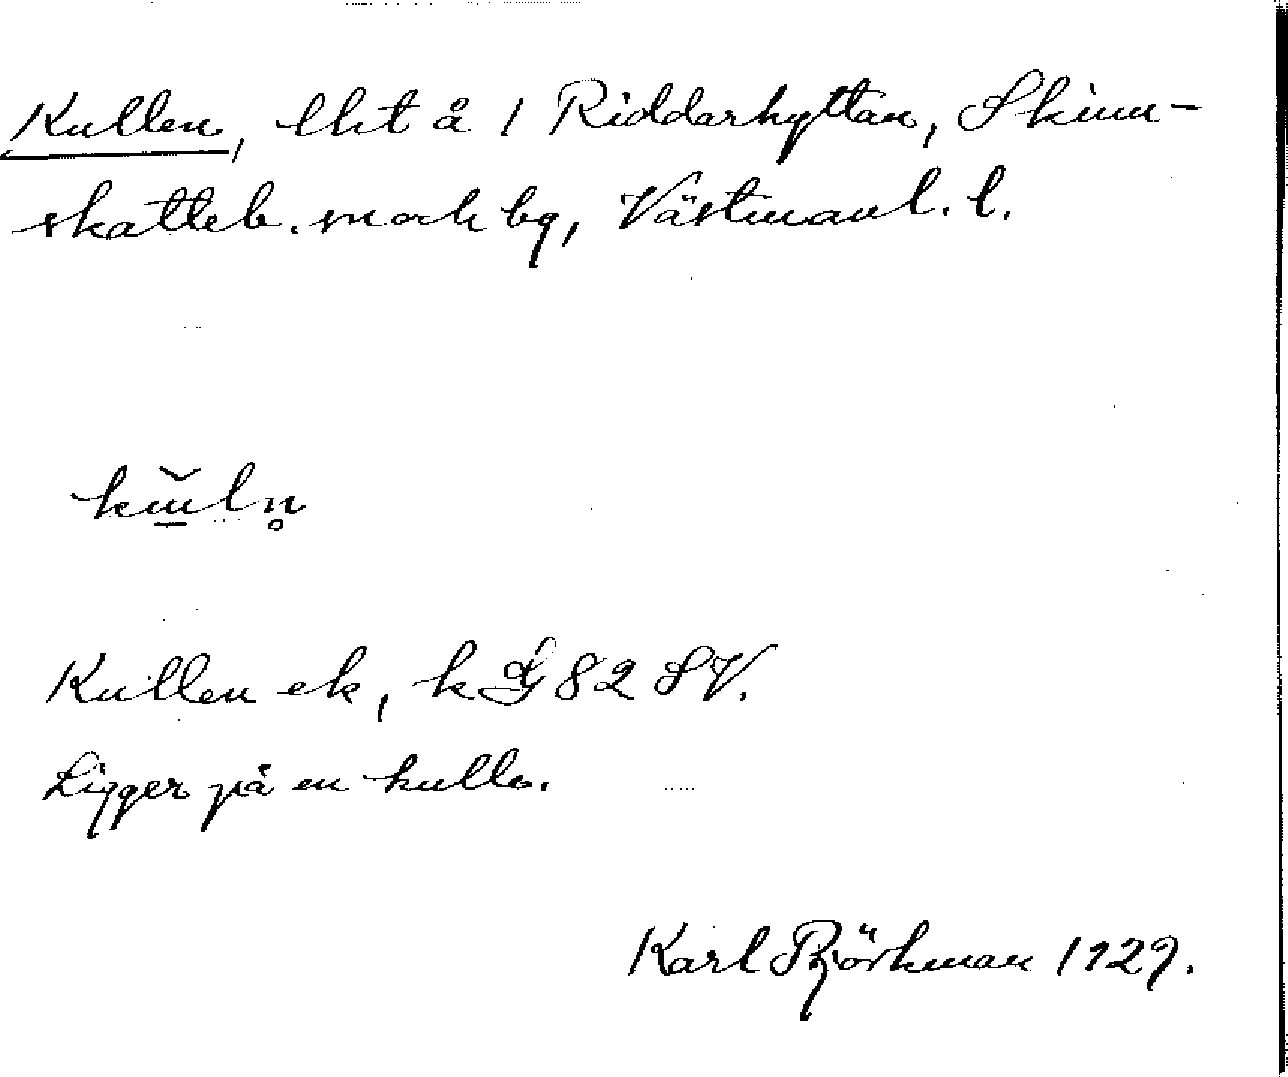 Kullen, lht å 1 Riddarhyttan, Skinn-
skatteb. sn och bg, Västmanl. l.
Kullen ek, k G 82 SV.
Ligger på en kulle.
Karl Björkman 1929.